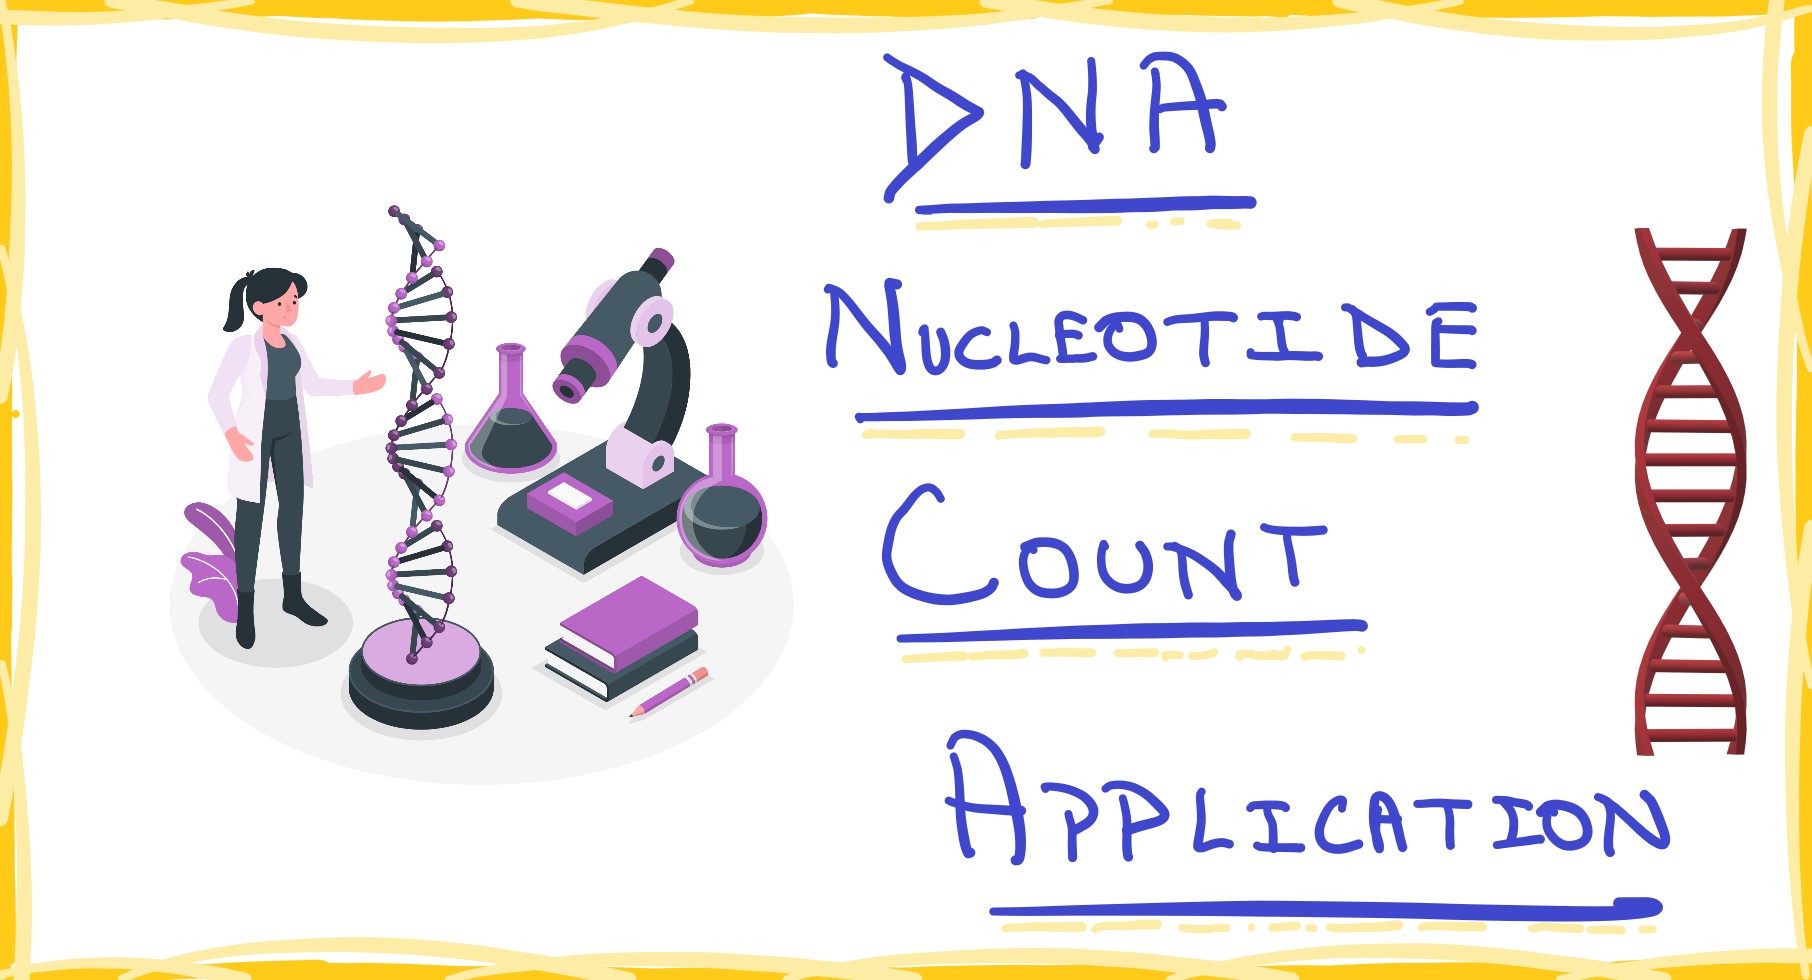 DNA
NUCLEOTIDE
COUNT
APPLICATION